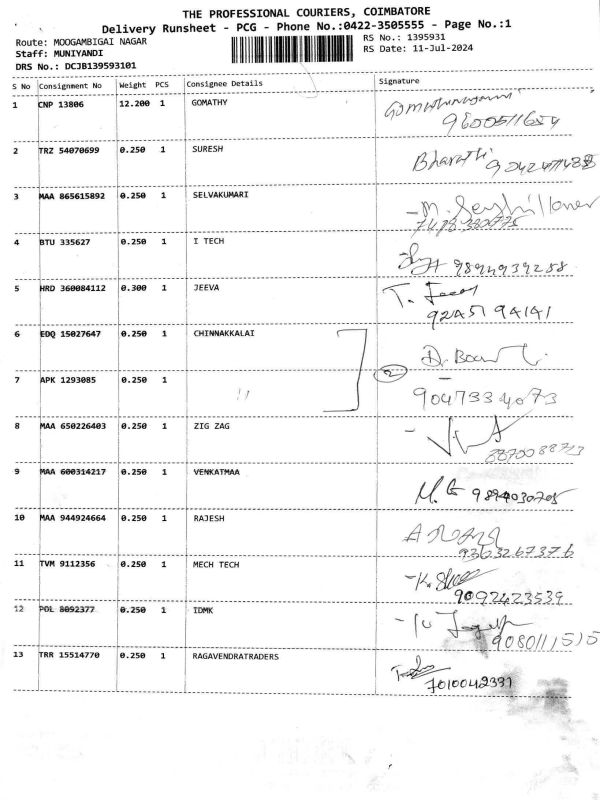 THE PROFESSIONAL COURIERS, COIMBATORE
Delivery Runsheet - PCG - Phone No.:0422-3505555 - Page No.:1
Route: MOOGAMBIGAI NAGAR
RS No.: 1395931
Staff: MUNIYANDI
RS Date: 11-Jul-2024
DRS No.: DCJB139593101
S No Consignment No Weight PCS Consignee Details Signature
1 CNP 13806 12.200 1 GOMATHY
9600511654
2 TRZ 54070699 0.250 1 SURESH Bharathi
3 MAA 865615892 0.250 1 SELVAKUMARI
4 BTU 335627 0.250 1 I TECH 9894939288
5 HRD 360084112 0.300 1 JEEVA
9245194141
6 EDQ 15027647 0.250 1 CHINNAKKALAI
7 APK 1293085 0.250 1 " 2
9047334073
8 MAA 650226403 0.250 1 ZIG ZAG
8870088723
9 MAA 600314217 0.250 1 VENKATMAA 9894030705
10 MAA 944924664 0.250 1 RAJESH
9363267376
11 TVM 9112356 0.250 1 MECH TECH
9092423539
12 POL 8092377 0.250 1 IDMK
9080111515
13 TRR 15514770 0.250 1 RAGAVENDRATRADERS
7010042331